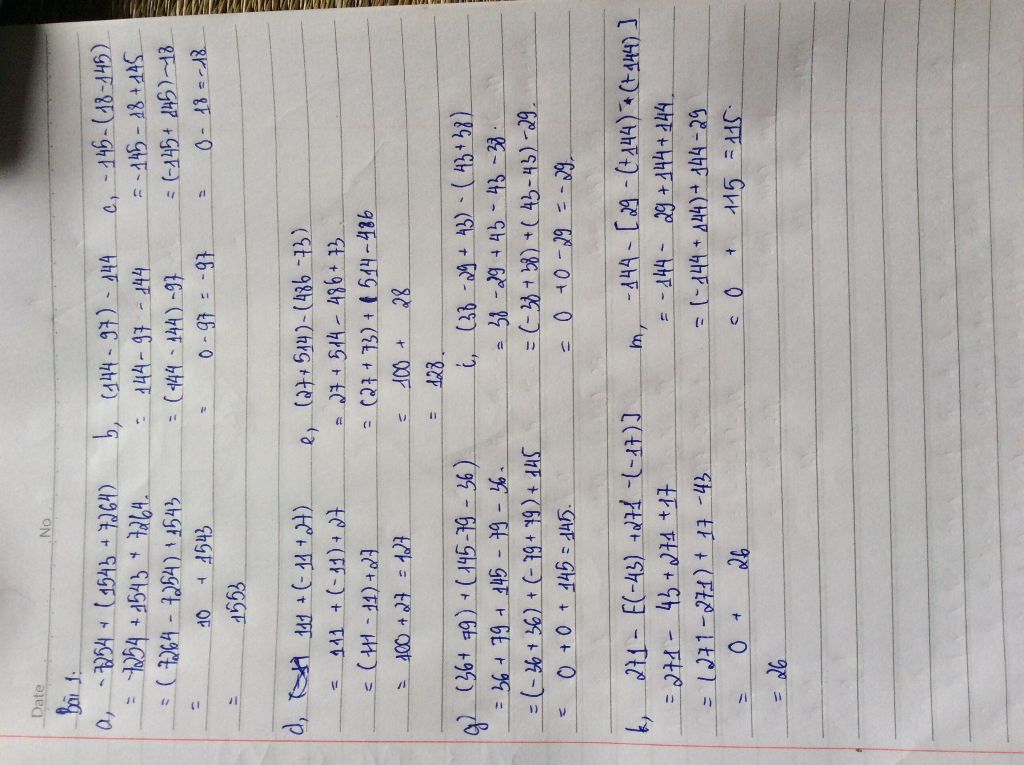 Date No
Bài 1.
a, -7254 + (1543 + 7264) b, (144 - 97) - 144 c, -145 - (18 - 145)
= -7254 + 1543 + 7264. = 144 - 97 - 144 = -145 - 18 + 145
= (7264 - 7254) + 1543 = (144 - 144) - 97 = (-145 + 145) - 18
= 10 + 1543 = 0 - 97 = -97 = 0 - 18 = -18
= 1553
d, 111 + (-11 + 27) e, (27 + 514) - (486 - 73)
= 111 + (-11) + 27 = 27 + 514 - 486 + 73
= (111 - 11) + 27 = (27 + 73) + 514 - 486
= 100 + 27 = 127 = 100 + 28
= 128.
g) (36 + 79) + (145 - 79 - 36) i, (38 - 29 + 43) - (43 + 38)
= 36 + 79 + 145 - 79 - 36. = 38 - 29 + 43 - 43 - 38.
= (-36 + 36) + (-79 + 79) + 145 = (-38 + 38) + (43 - 43) - 29.
= 0 + 0 + 145 = 145. = 0 + 0 - 29 = -29.
k, 271 - [(-43) + 271 - (-17)] m, -144 - [29 - (+144) - (+144)]
= 271 - 43 + 271 + 17 = -144 - 29 + 144 + 144.
= (271 - 271) + 17 - 43 = (-144 + 144) + 144 - 29
= 0 + 26 = 0 + 115 = 115.
= 26